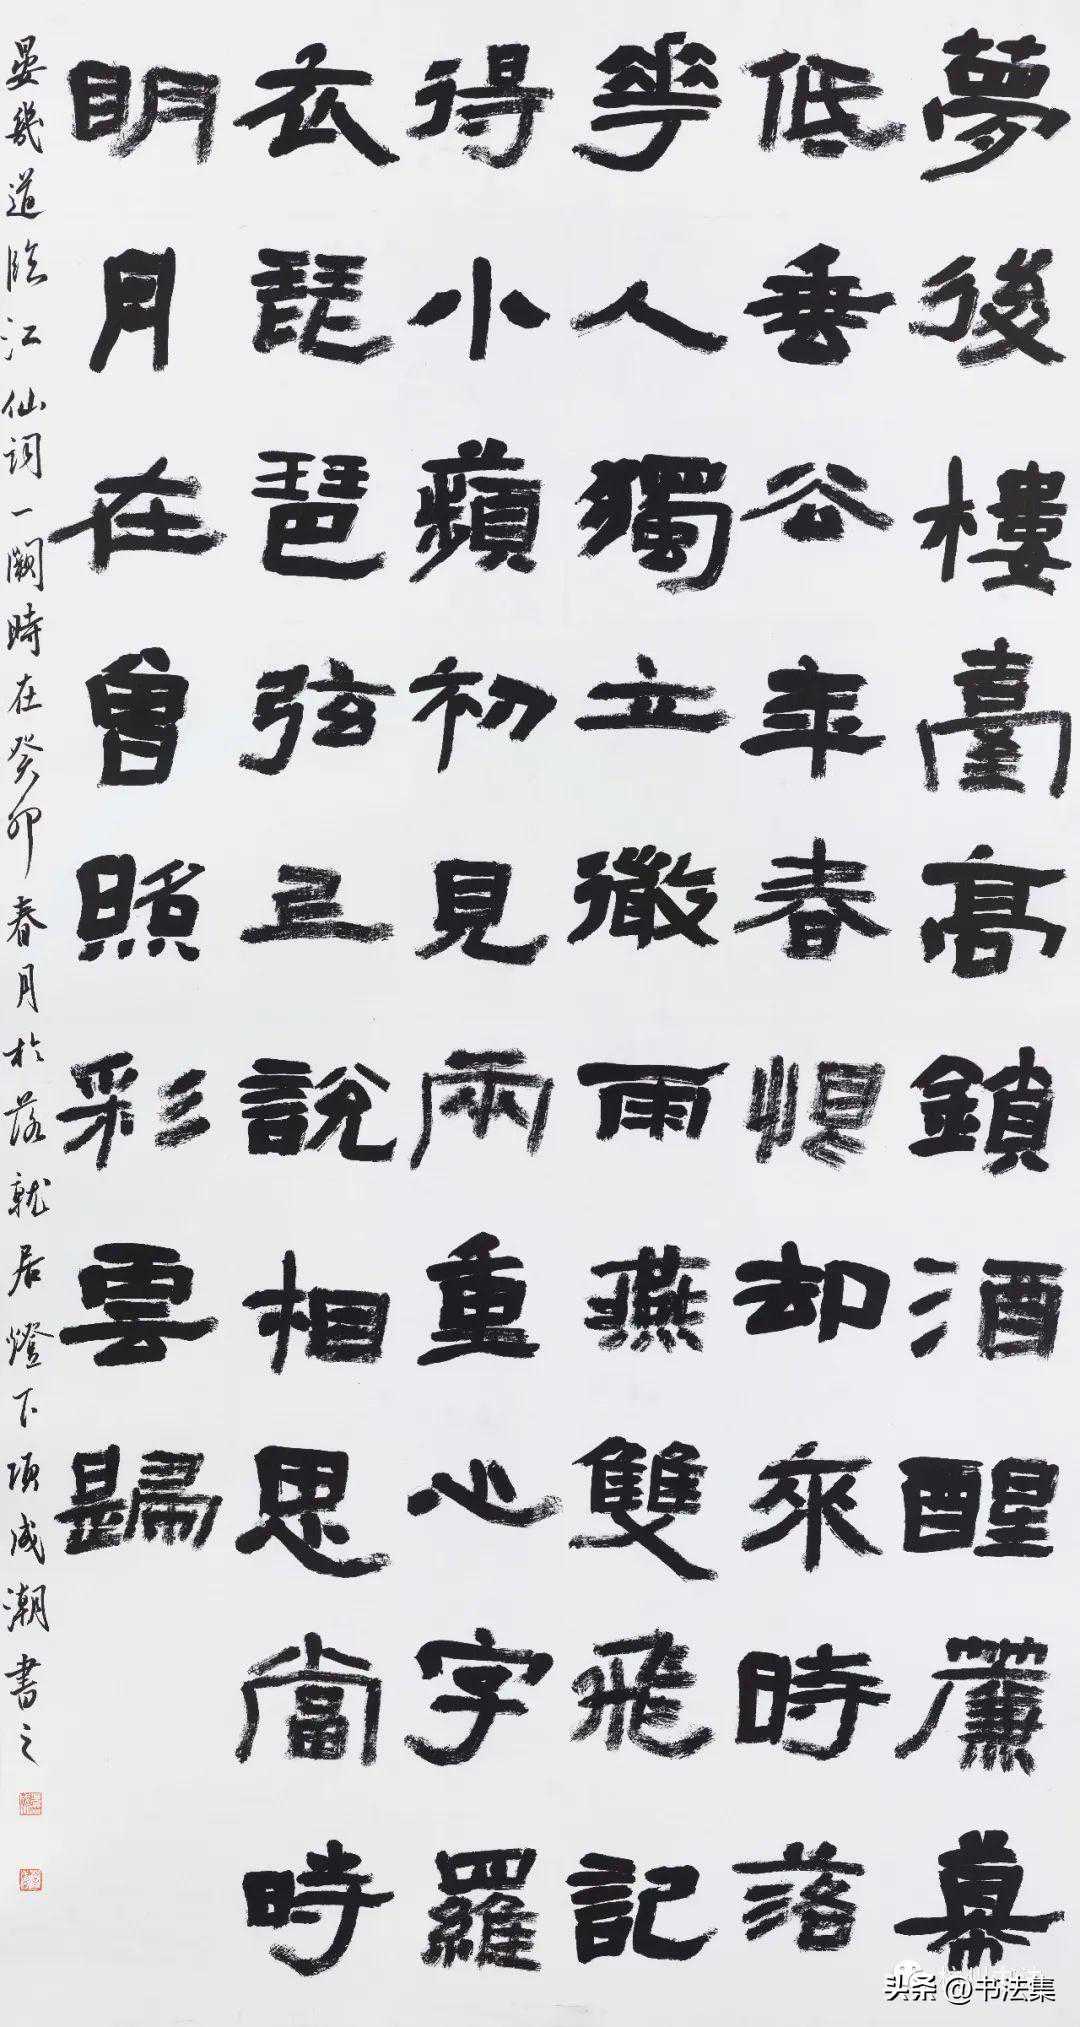 夢後樓臺高鎖酒醒簾幕
低垂去年春恨却來時落
華人獨立微雨燕雙飛記
得小蘋初見兩重心字羅
衣琵琶弦上說相思當時
明月在曾照彩雲歸
晏幾道臨江仙詞一闕時在癸卯春月於落居燈下項成潮書之
头条 @书法集